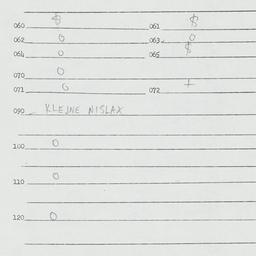 060 $ 061 $
062 0 063 0
064 0 065 $
070 0
071 0 072 +
090 KLEJNE NISLAX
100 0
110 0
120 0